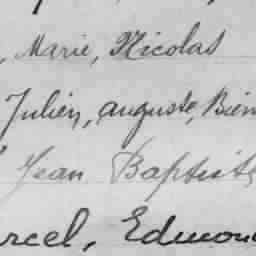 , Marie, Nicolas
Julien, auguste, Bien
Jean Baptiste
rcel, Edmond